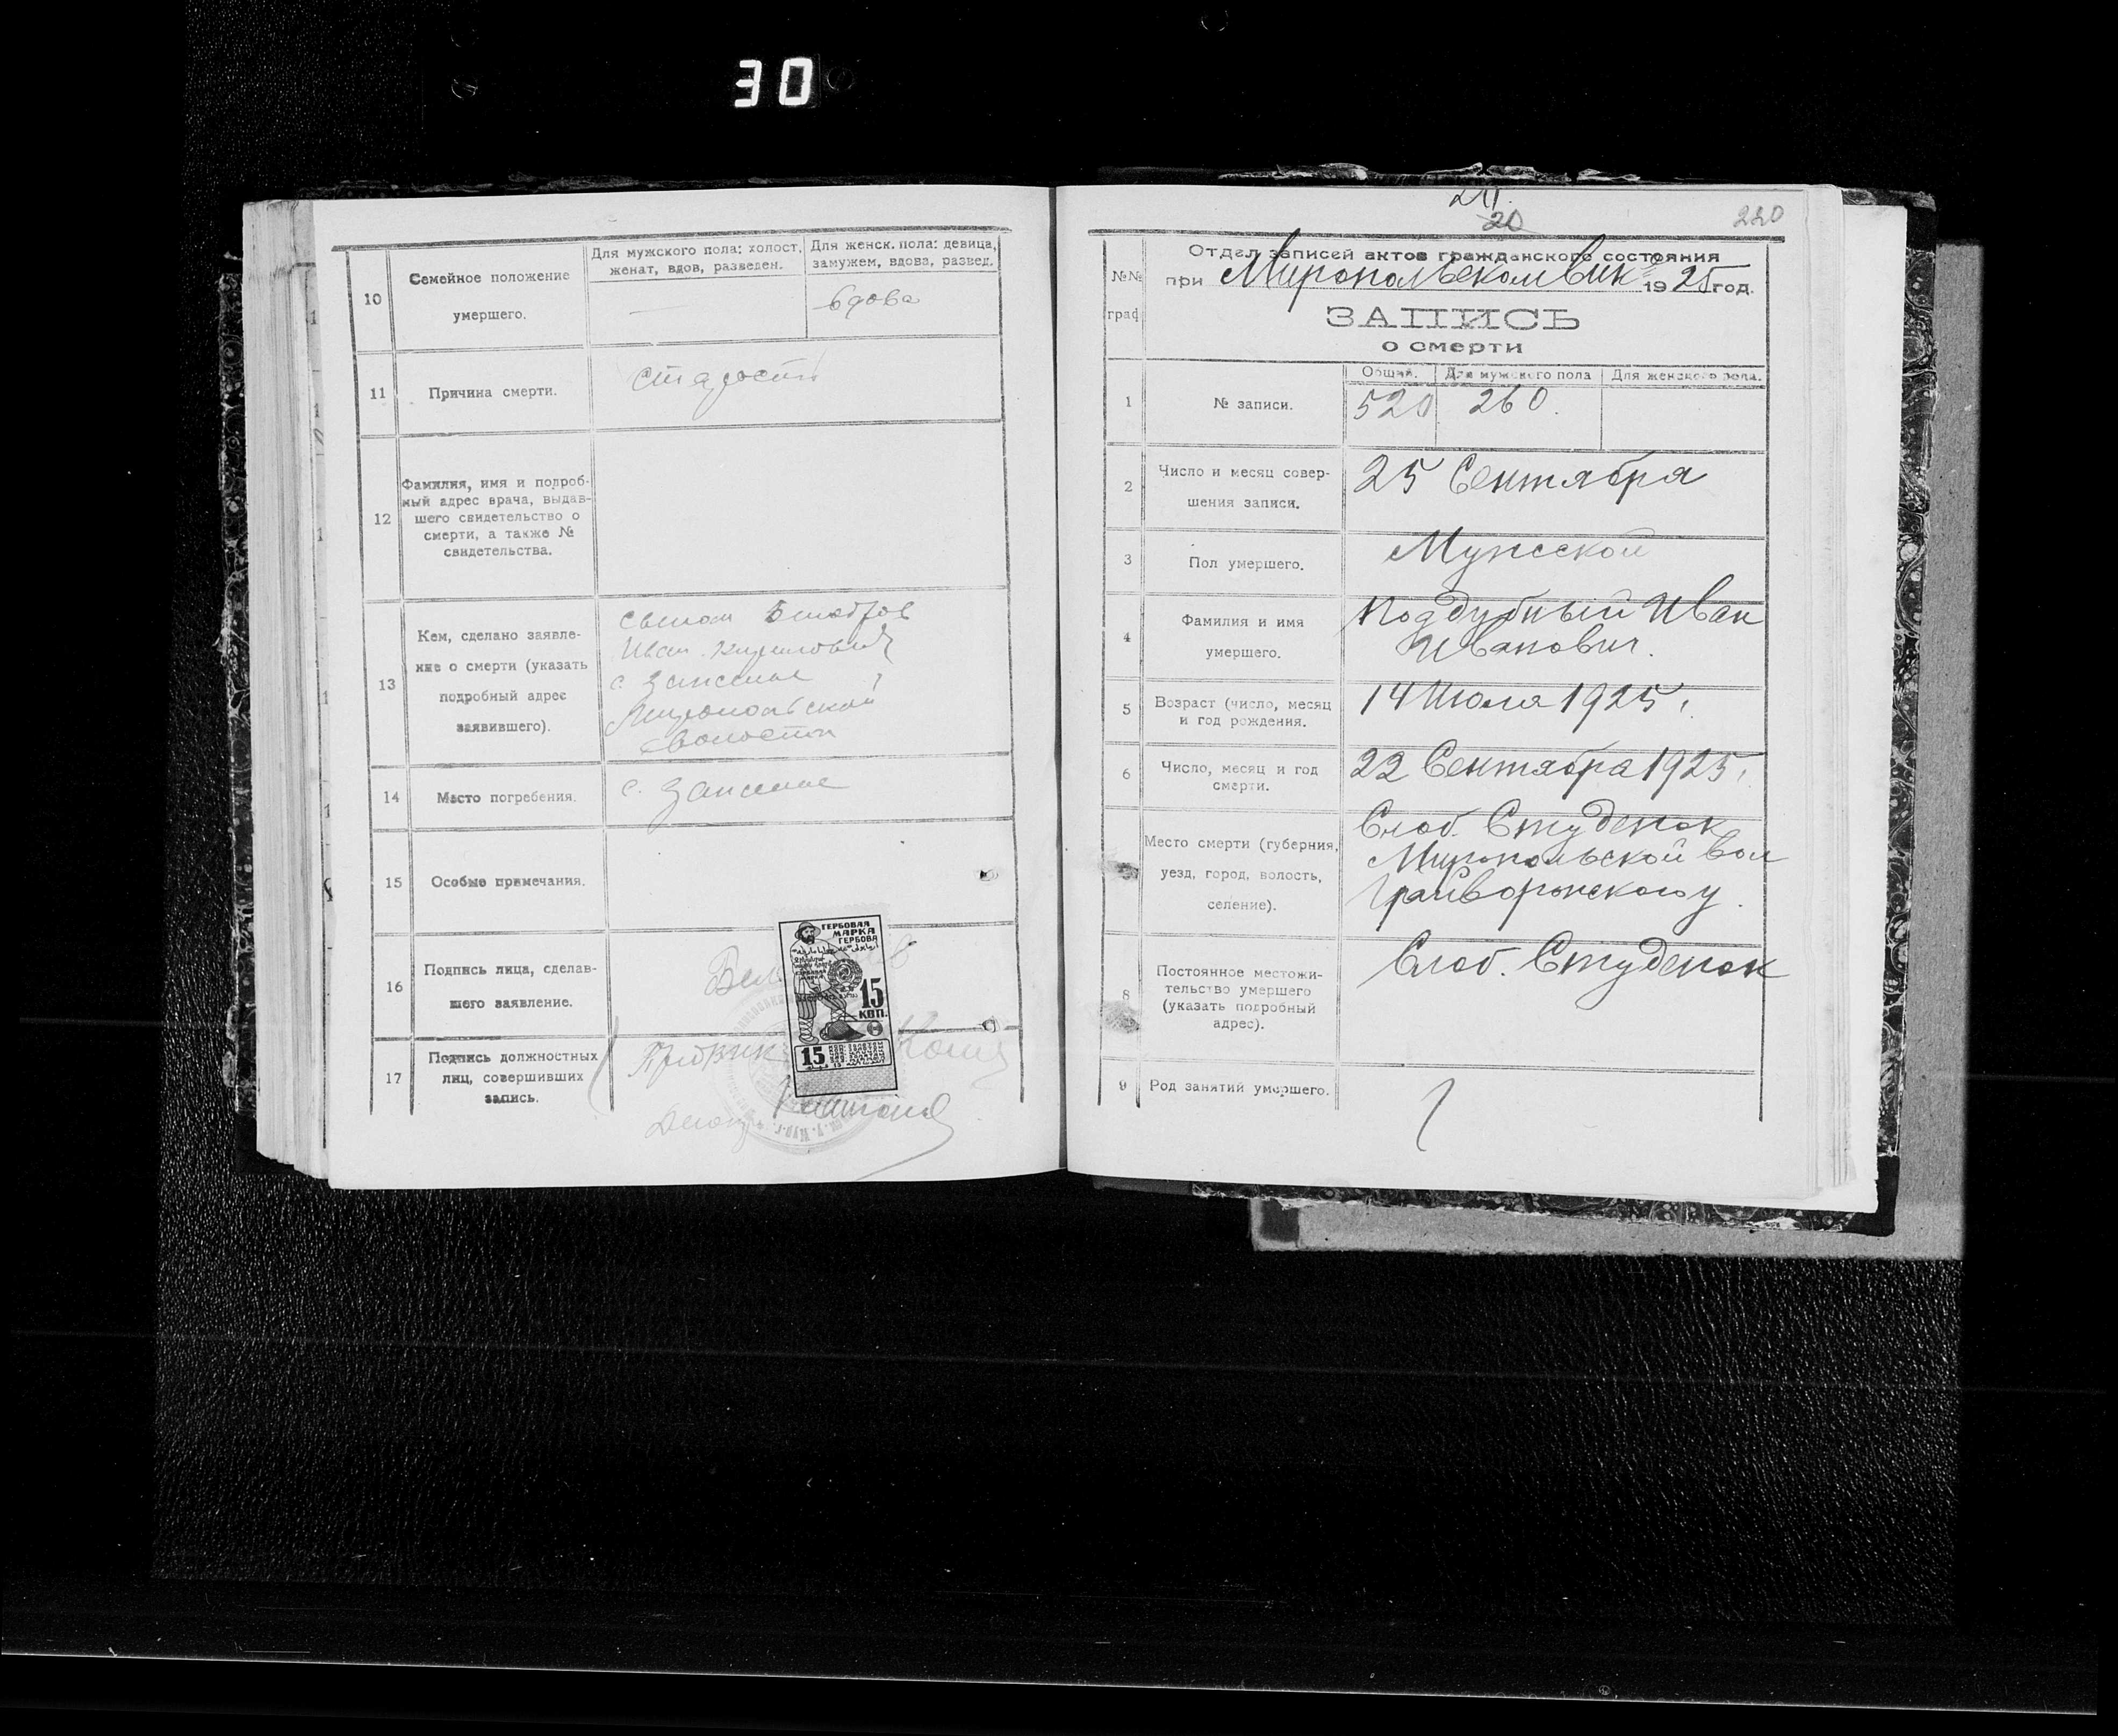 30
10
Семейное положение
умершего.
Для мужского пола: холост,
женат, вдов, разведен.
Для женск. пола: девица,
замужем, вдова, развед.
вдова
11
Причина смерти.
старость
12
Фамилия, имя и подроб-
ный адрес врача, выдав-
шего свидетельство о
смерти, а также №
свидетельства.
13
Кем, сделано заявле-
ние о смерти (указать
подробный адрес
заявившего).
Иван
с.
Миропольской
волости
14
Место погребения.
с.
15
Особые примечания.
16
Подпись лица, сделав-
шего заявление.
17
Подпись должностных
лиц, совершивших
запись.
ГЕРБОВАЯ
МАРКА
ГЕРБОВА
15
КОП.
15
20
220
№№
граф
Отдел записей актов гражданского состояния
при Миропольском Вик'е 1925 год.
ЗАПИСЬ
о смерти
1
№ записи.
Общий.
Для мужского пола
Для женского пола.
520
260.
2
Число и месяц совер-
шения записи.
25 Сентября
3
Пол умершего.
Мужской
4
Фамилия и имя
умершего.
Поддубный Иван
Иванович.
5
Возраст (число, месяц
и год рождения.
14 Июля 1925 г.
6
Число, месяц и год
смерти.
22 Сентября 1925 г.
Место смерти (губерния,
уезд, город, волость,
селение).
Слоб. Студенок
Миропольской вол
Грайворонского у.
8
Постоянное местожи-
тельство умершего
(указать подробный
адрес).
Слоб. Студенок
9
Род занятий умершего.